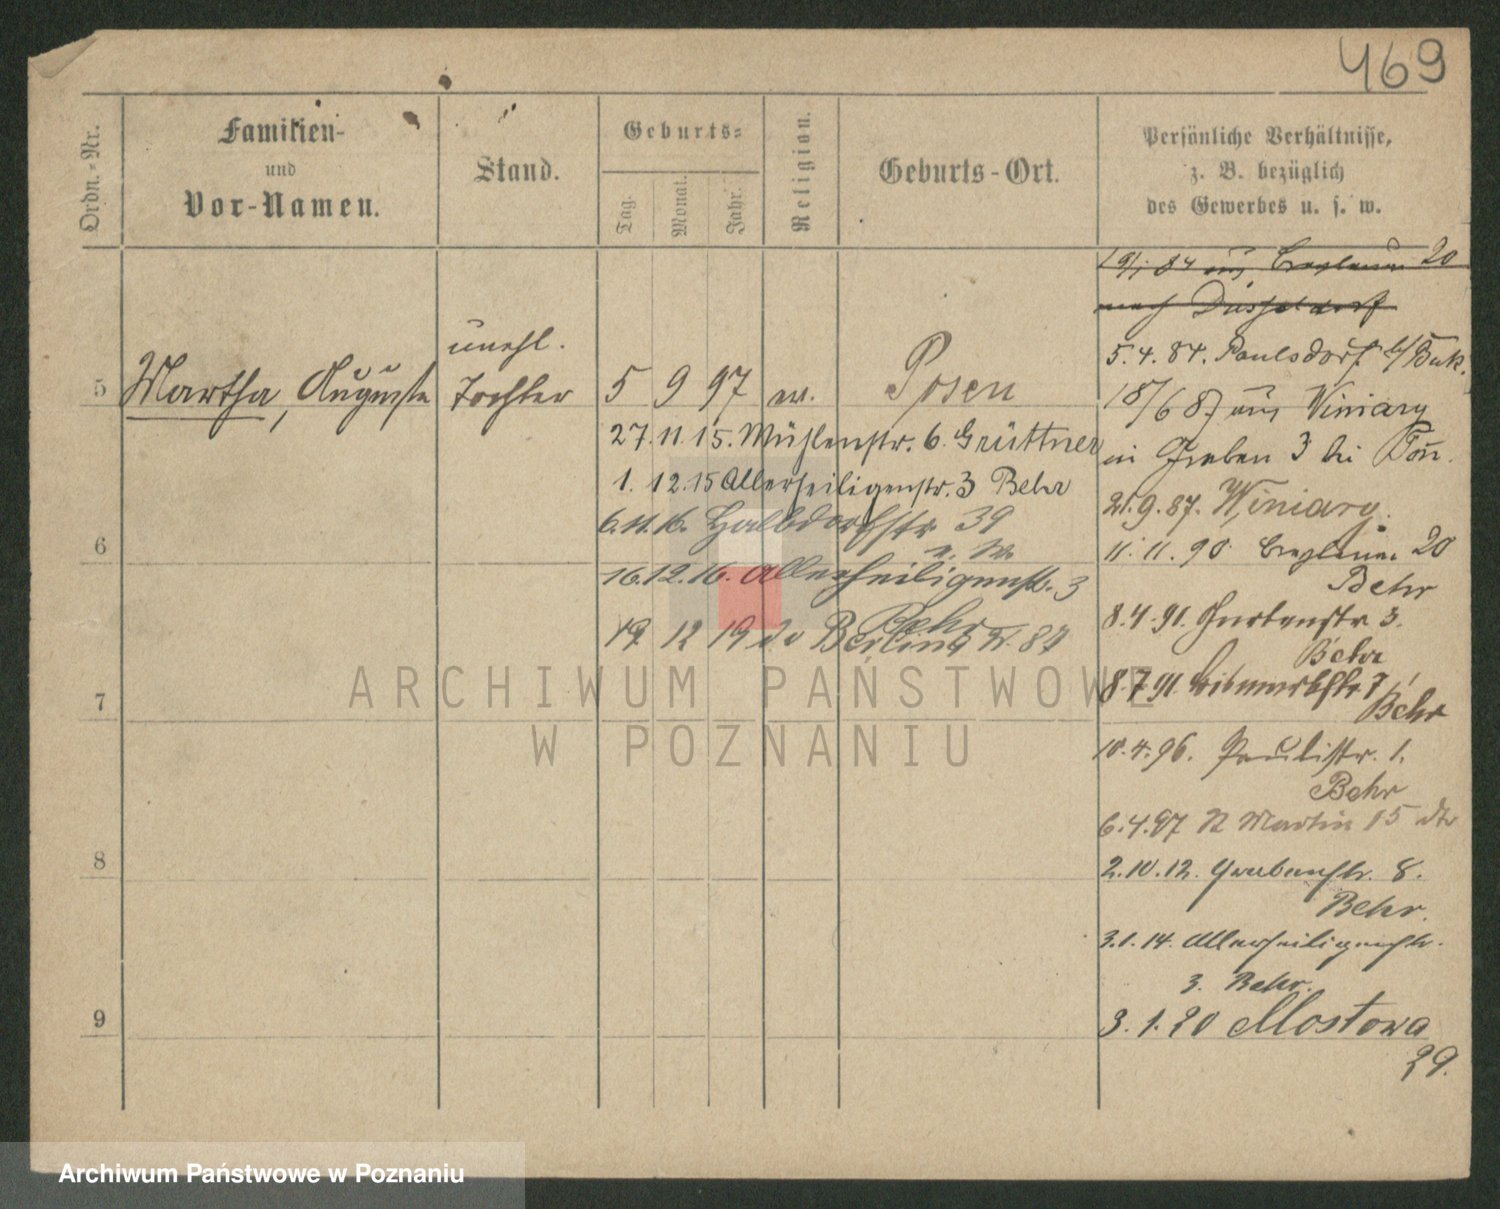 469
Ordn.-Nr.
Familien-
und
Vor-Namen.
Stand.
Geburts-
Tag.
Monat.
Jahr.
Religion.
Geburts-Ort.
Persönliche Verhältnisse,
z. B. bezüglich
des Gewerbes u. s. w.
19/1 84 aus 20
nach Düsseldorf
5.4.84. Paulsdorf
18/6 87 aus Winiary
in Graben 3 bei
21.9.87. Winiary.
11.11.90. 20
Behr
8.4.91. Gartenstr 3.
Behr
8.7.91. Bismarckstr 7
Behr
10.4.96. Paulistr. 1.
Behr
6.4.97 St Martin 15
2.10.12. Grabenstr. 8.
Behr.
3.1.14. Allerheiligenstr.
3. Behr.
3.1.20 Mostowa
29.
unehl.
5 Martha, Auguste Tochter 5 9 97 Posen
27.11.15. Mühlenstr. 6. Grüttner
1.12.15 Allerheiligenstr. 3 Behr
6.11.16. Halbdorfstr 39
6
16.12.16. Allerheiligenstr. 3
Behr
19 12 19 Berlin
7
8
9
ARCHIWUM PAŃSTWOWE
W POZNANIU
Archiwum Państwowe w Poznaniu